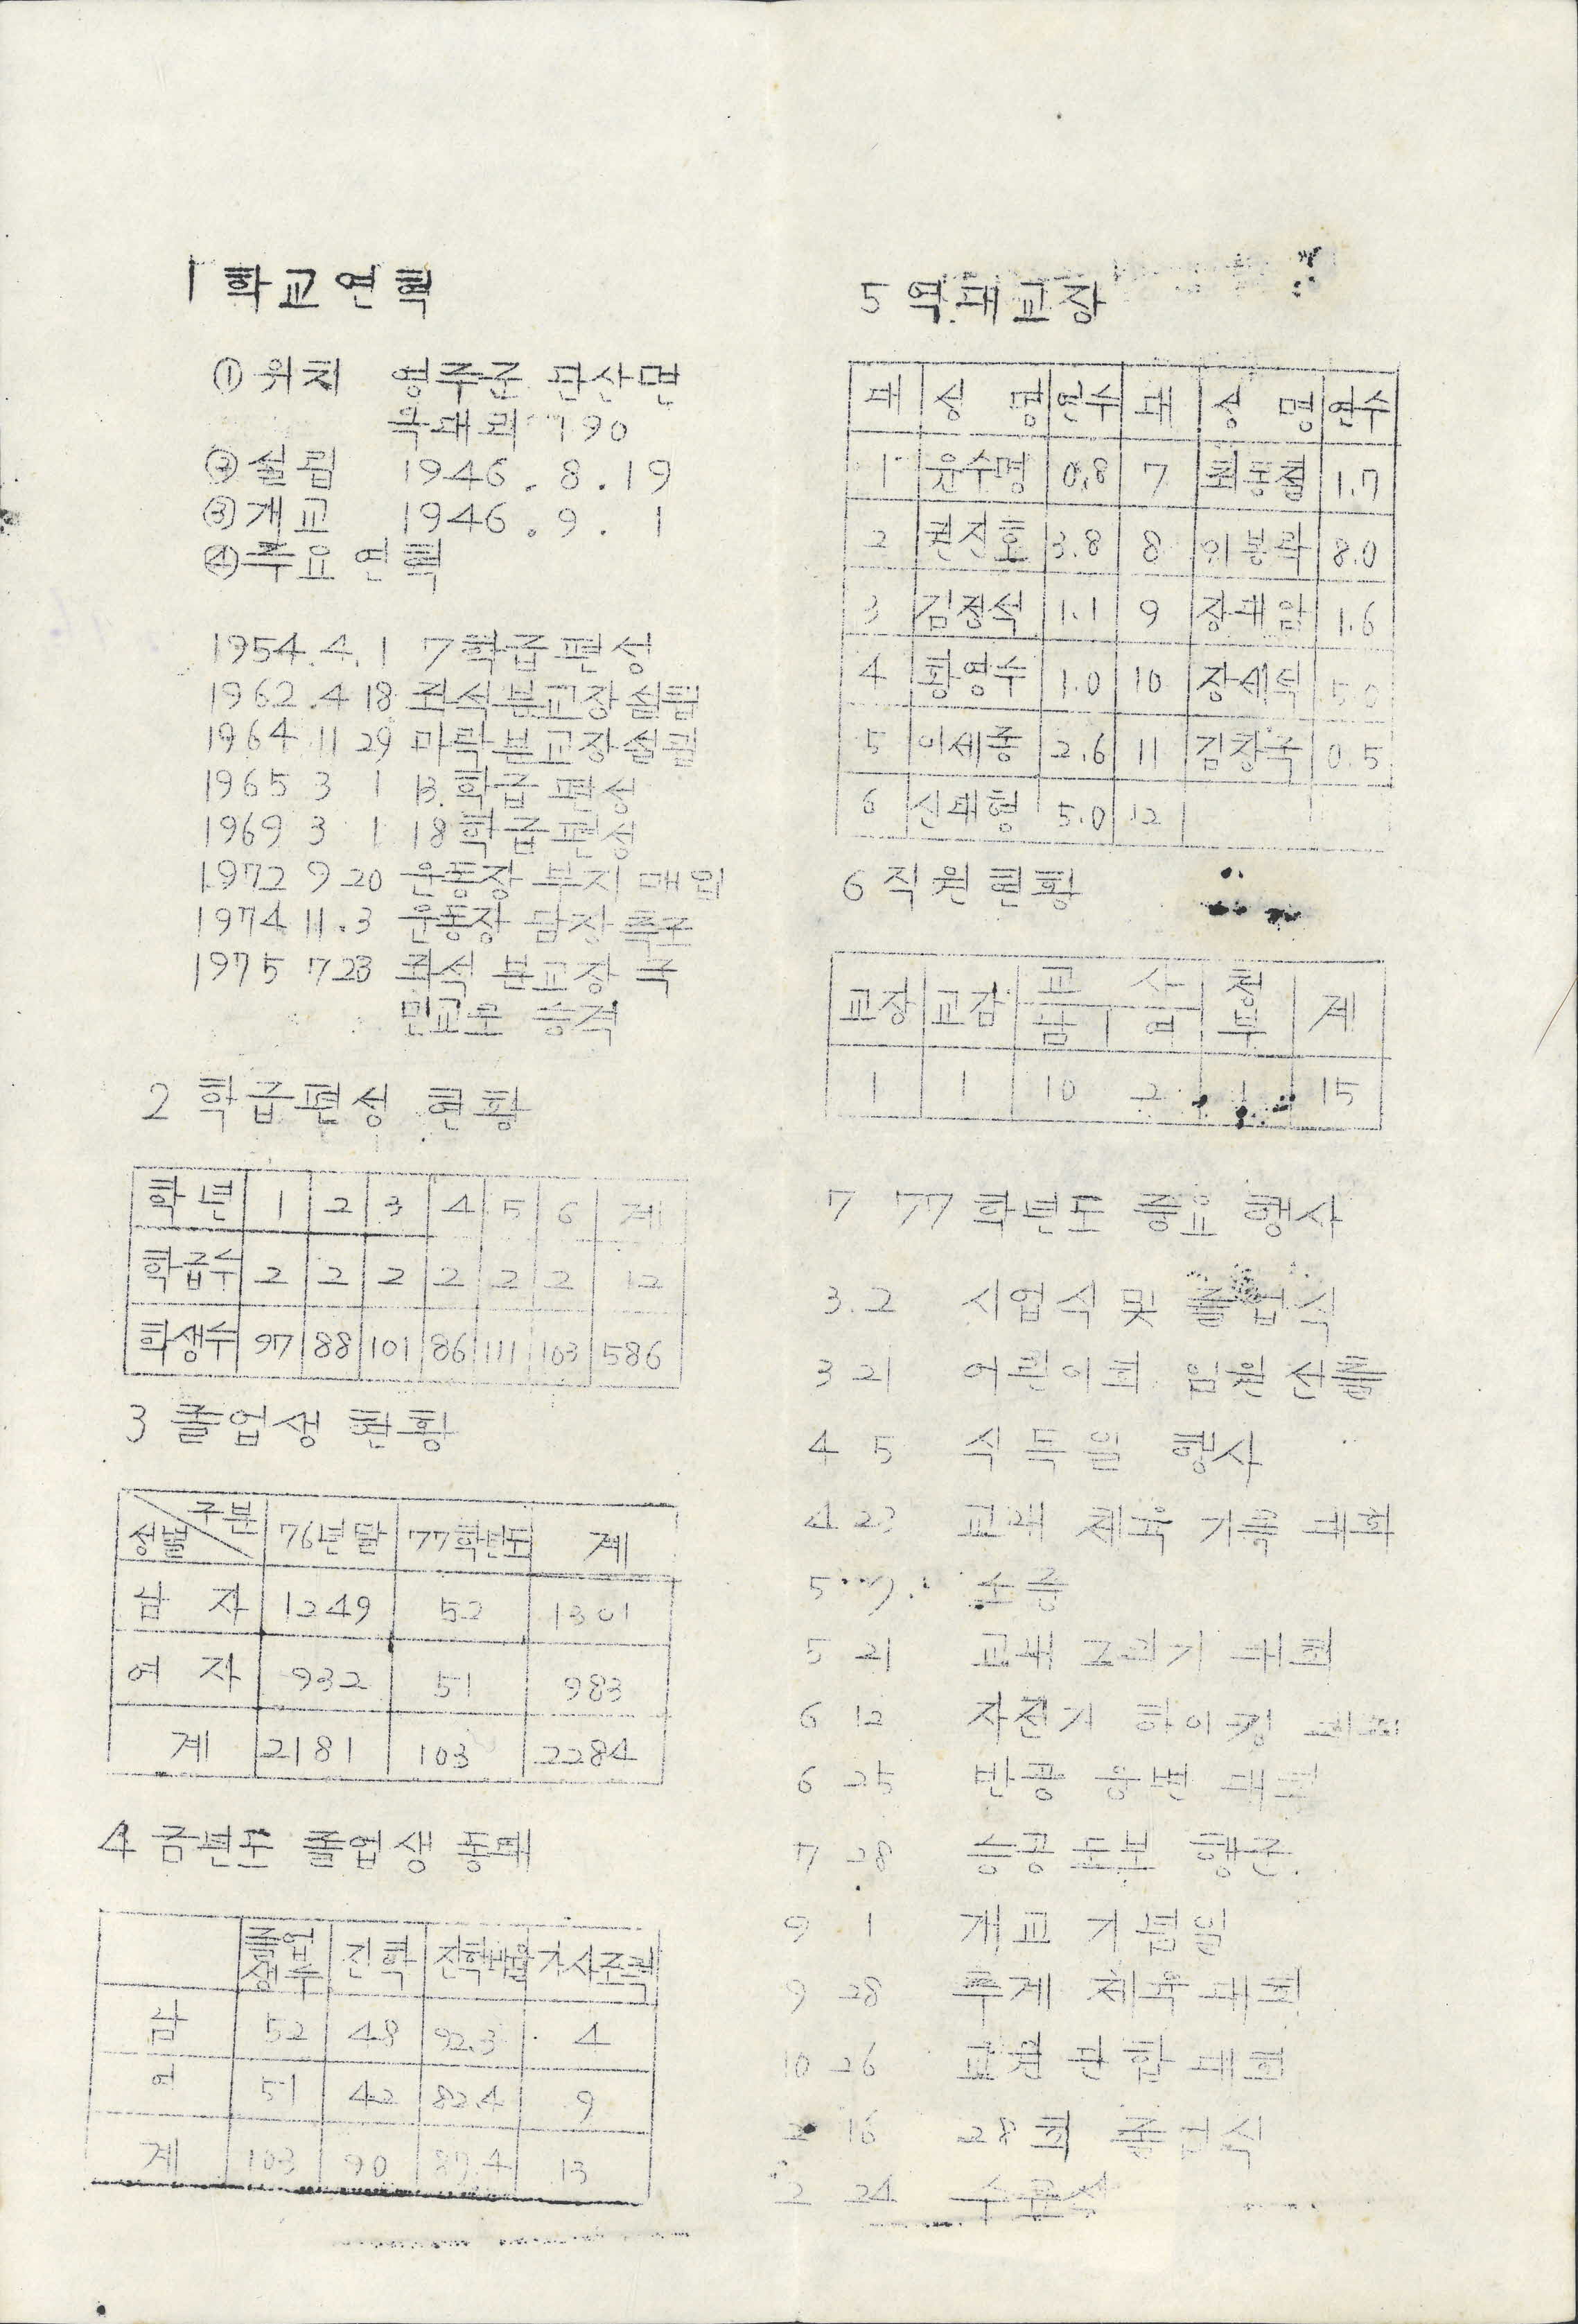 1 학교연혁
① 위치 영주군 단산면
옥대리 790
② 설립 1946.8.19
③ 개교 1946.9.1
④ 주요연혁
1954.4.1 7학급편성
1962.4 18 좌석분교장설립
1964 11 29 마락분교장설립
1965 3 1 13.학급편성
1969 3 1 18학급편성
1972 9 20 운동장 부지 매입
1974 11.3 운동장 담장 축조
1975 7 23 좌석 분교장 국
민교로 승격
2 학급편성 현황
학년 1 2 3 4 5 6 계
학급수 2 2 2 2 2 2 12
학생수 97 88 101 86 111 103 586
3 졸업생 현황
구분
성별 76년말 77학년도 계
남 자 1249 52 1301
여 자 932 51 983
계 2181 103 2284
4 금년도 졸업생 동태
졸업생수 진학 가사조력
남 52 48 92.3 4
여 51 42 82.4 9
계 103 90 87.4 13
5 역대교장
대 성 명 연수 대 성 명 연수
1 윤수명 0.8 7 최동철 1.7
2 권진호 3.8 8 이봉락 8.0
3 김정석 1.1 9 장태암 1.6
4 황영수 1.0 10 장세덕 5.0
5 이세종 2.6 11 김창국 0.5
6 신태형 5.0 12
6 직원현황
교장 교감 교 사 청부 계
남 여
1 1 10 2 1 15
7 77 학년도 중요 행사
3.2 시업식 및 졸업식
3 21 어린이회 임원 선출
4 5 식목일 행사
교내 체육 기록 대회
5 소풍
5 21 교내 그리기 대회
6 12 자전거 하이킹 대회
6 25 반공 웅변 대회
7 28 승공 도보 행군
9 1 개교 기념일
9 28 추계 체육대회
10 26 교원 단합 대회
2 16 28회 졸업식
2 24 수료식